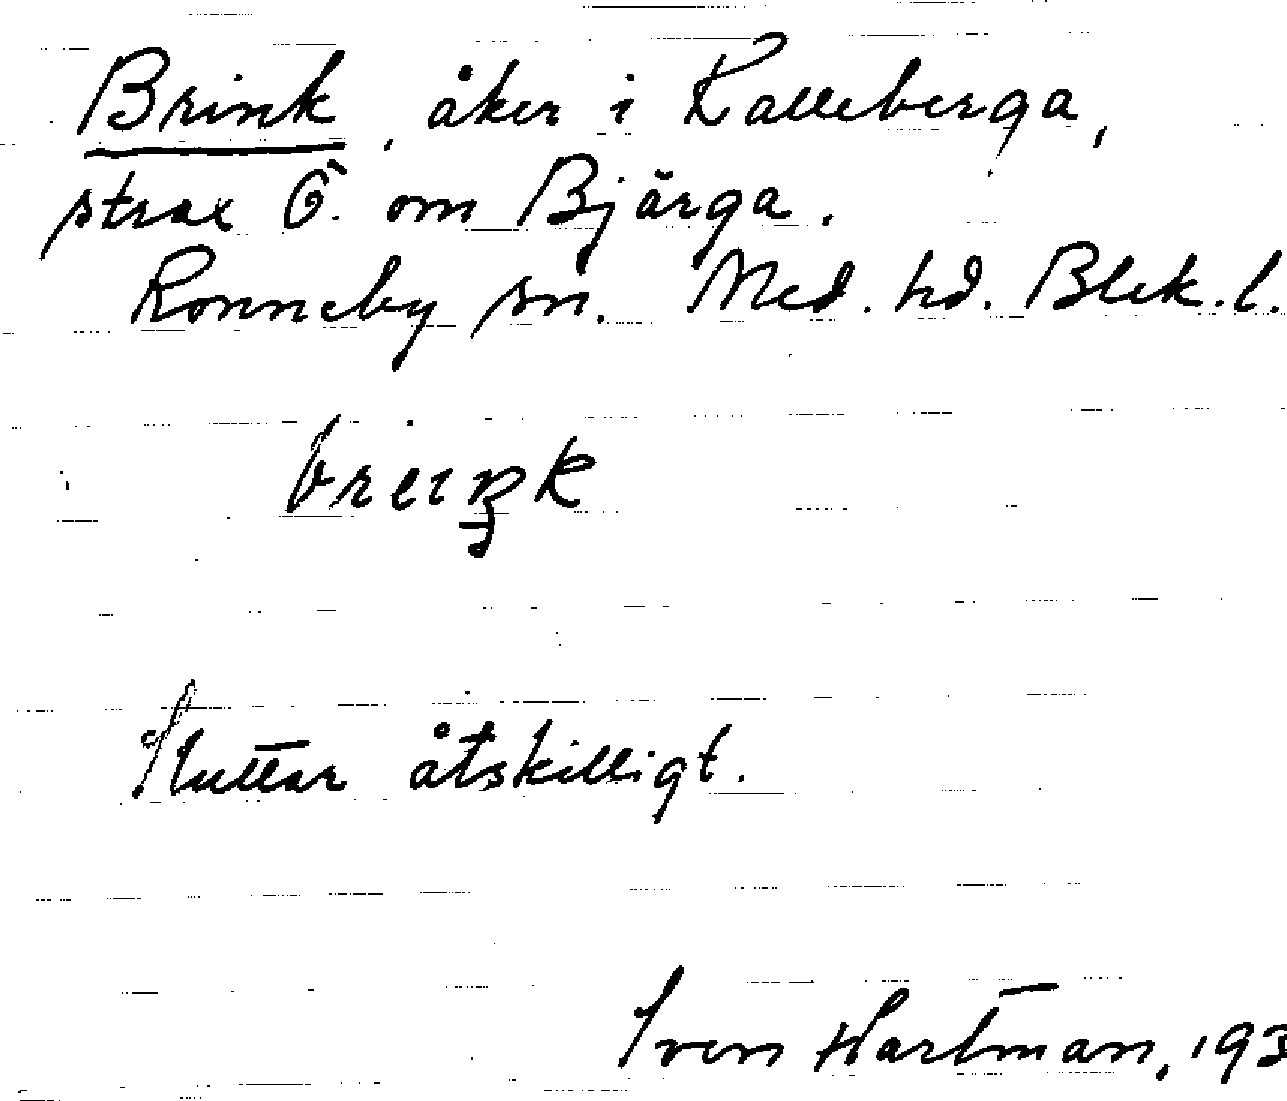 Brink, åker i Kalleberga,
strax Ö. om Bjärga.
Ronneby sn. Med. hd. Blek. l.
Sluttar åtskilligt.
Sven Hartman, 193